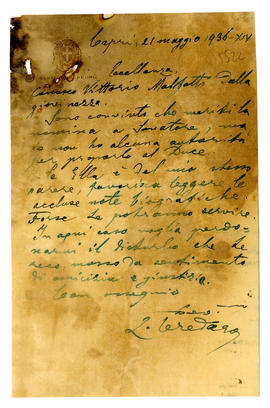 Capri, 21 maggio 1936-XIV
Eccellenza
Conosco Vittorio Malfatti dalla
giovinezza.
Sono convinto che meriti la
nomina a Senatore, ma
io non ho alcuna autorità
per proporlo al Duce
Se Ella è del mio stesso
parere, favorisca leggere le
accluse note biografiche.
Forse Le potranno servire.
In ogni caso voglia perdo-
narmi il disturbo che Le
reco, mosso da sentimento
di amicizia e giustizia.
Con ossequio